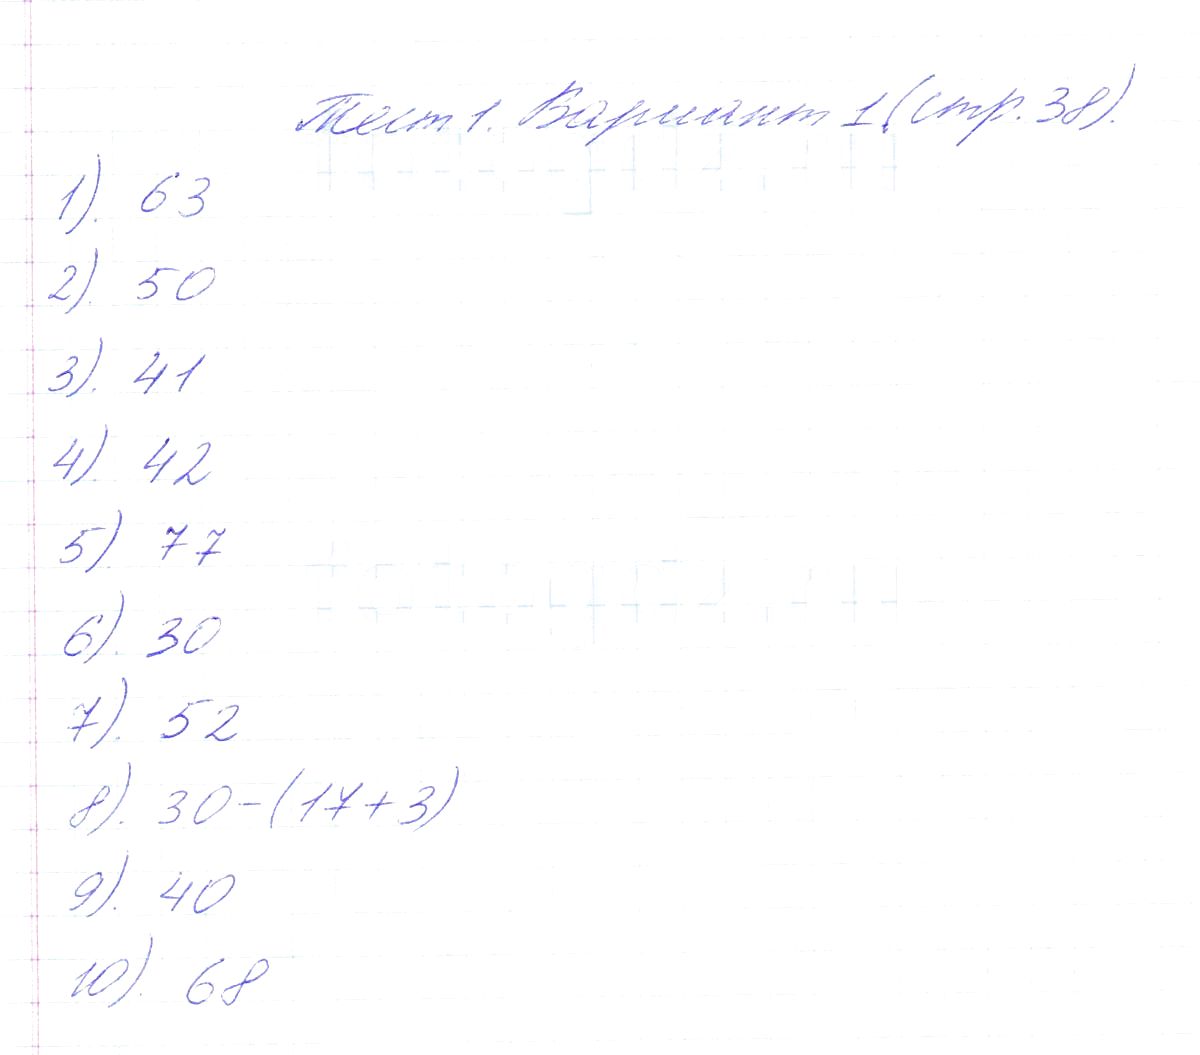 Тест 1. Вариант 1 (стр. 38).
1). 63
2). 50
3). 41
4). 42
5) 77
6). 30
7). 52
8). 30-(17+3)
9). 40
10). 68